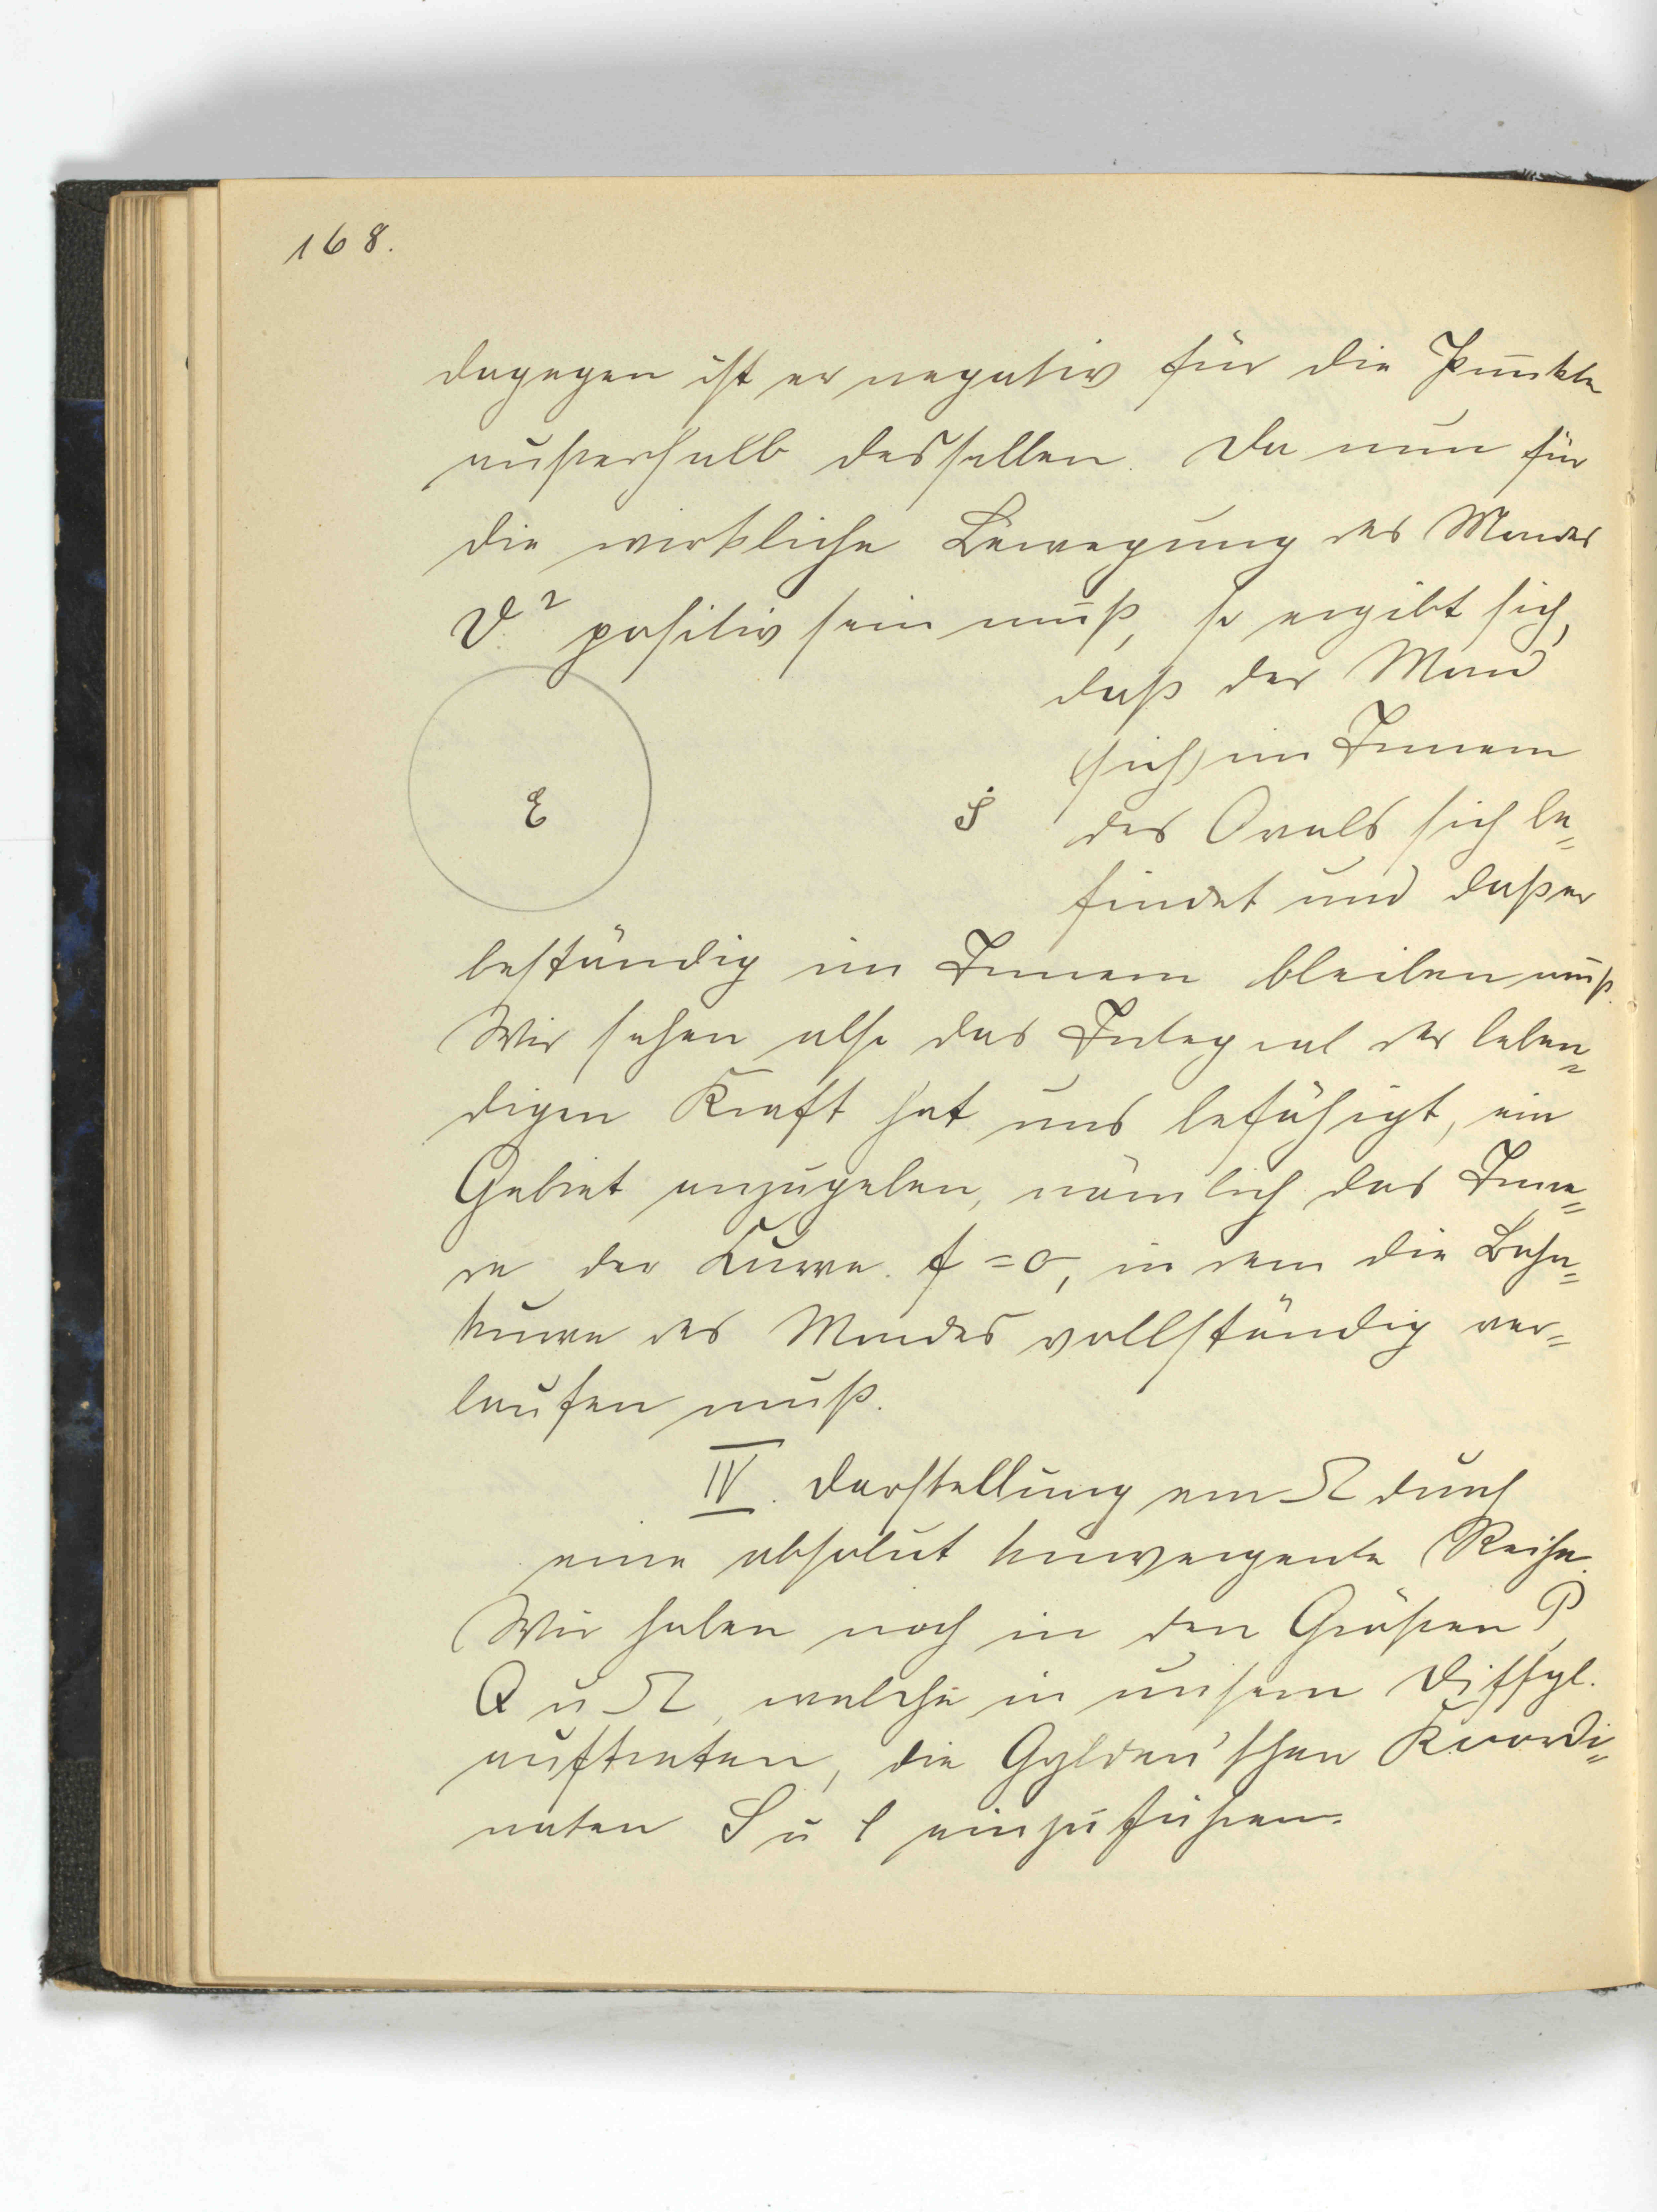 168.
dagegen ist er negativ für die Punkte
außerhalb desselben. Da nun für
die wirkliche Bewegung des Mondes
V² positiv sein muß, so ergibt sich,
daß der Mond
(sich) im Innern
E
S
des Ovals sich be=
findet und daß er
beständig im Innern bleiben muß.
Wir sehen also das Integral der leben=
digen Kraft hat uns befähigt, ein
Gebiet anzugeben, nämlich das Inne=
re der Kurve f = 0, in dem die Bahn=
kurve des Mondes vollständig ver=
laufen muß.
IV. Darstellung von Ω durch
eine absolut konvergente Reihe.
Wir haben noch in den Größen P,
Q u Ω, welche in unsern Diffgl.
auftreten, die Gylden'schen Koordi=
naten S u l einzuführen.